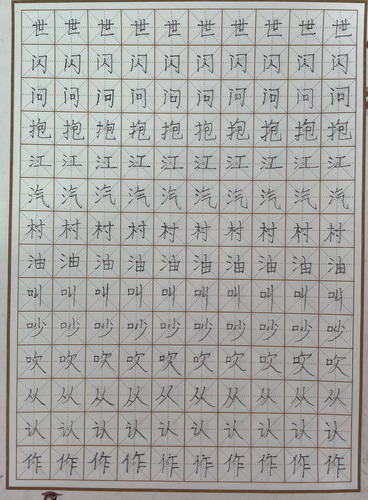 世世世世世世世世世世
闪闪闪闪闪闪闪闪闪闪
问问问问问问问问问问
抱抱抱抱抱抱抱抱抱抱
江江江江江江江江江江
汽汽汽汽汽汽汽汽汽汽
村村村村村村村村村村
油油油油油油油油油油
叫叫叫叫叫叫叫叫叫叫
吵吵吵吵吵吵吵吵吵吵
吹吹吹吹吹吹吹吹吹吹
从从从从从从从从从从
认认认认认认认认认认
作作作作作作作作作作